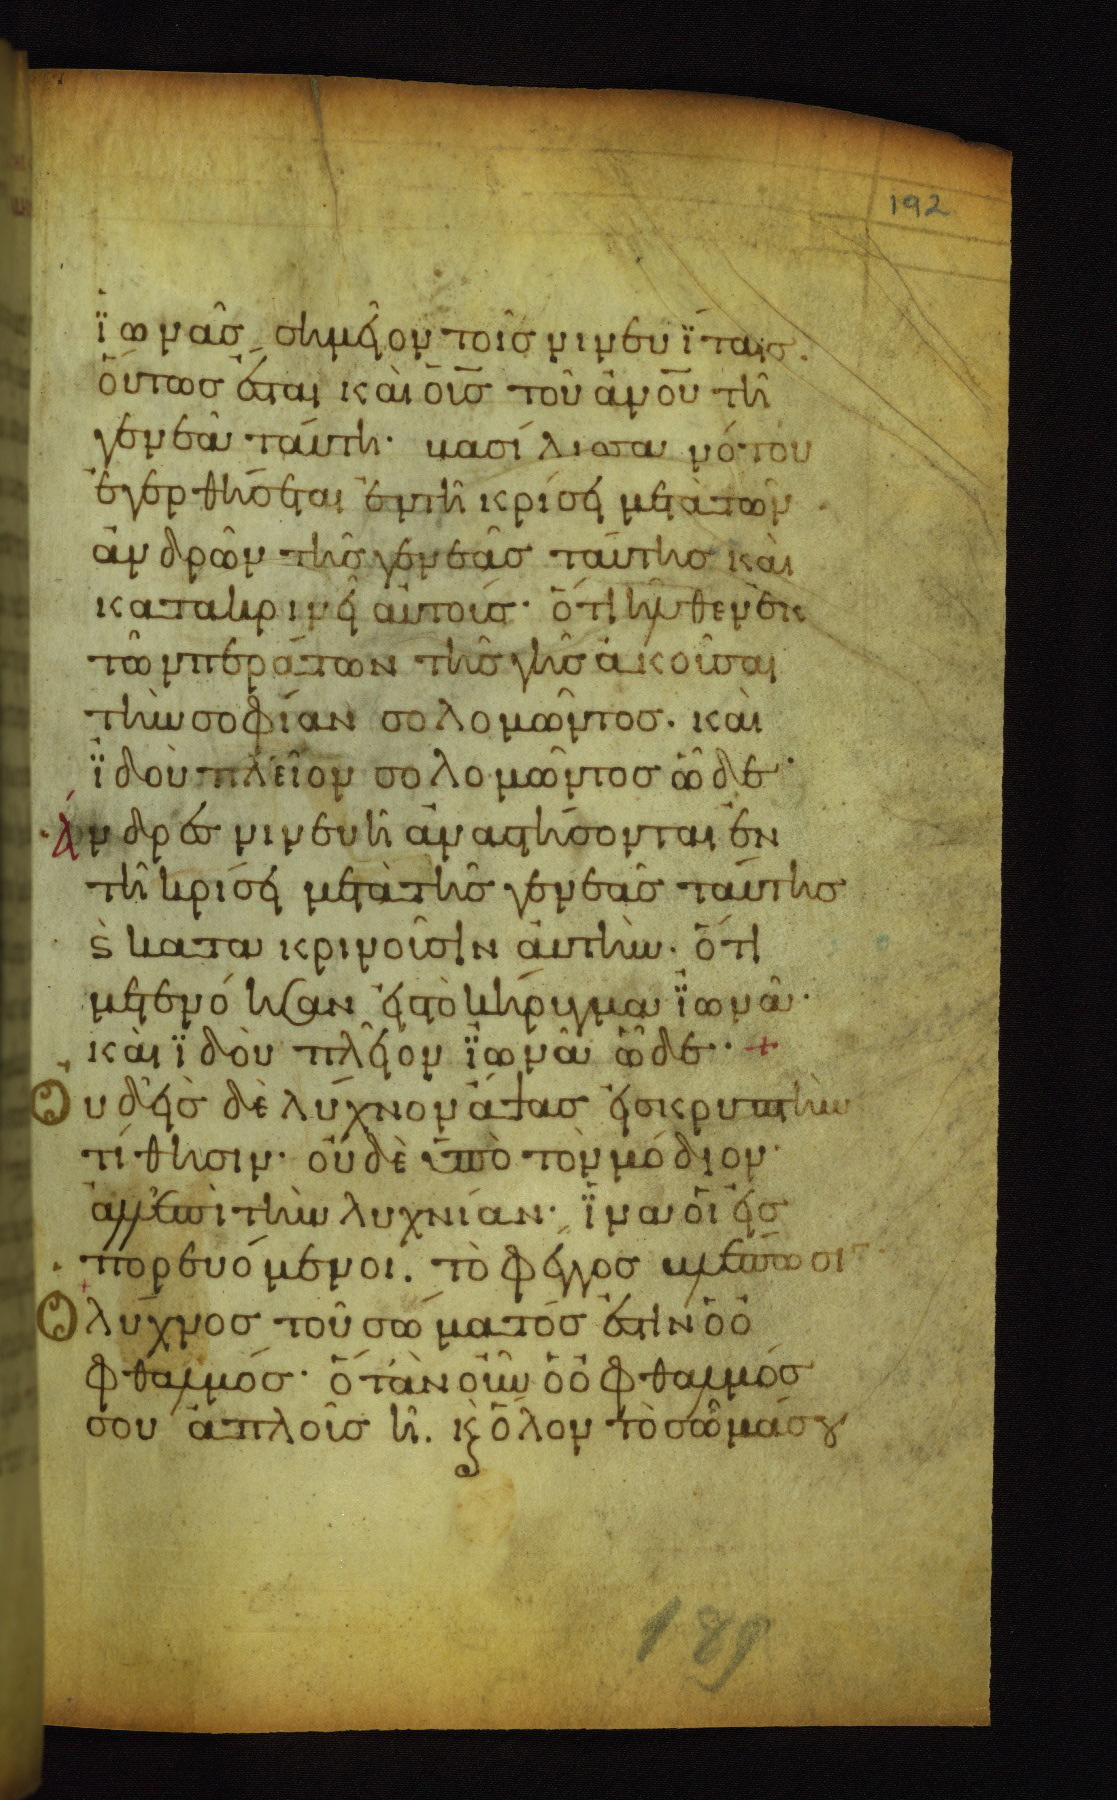 192
ϊωνᾶσ σημεῖον τοῖσ νινευΐταισ.
οὕτωσ ἔσται καὶ ὁ ῡσ τοῦ ἀν̅ο̅υ τῆ
γενεᾶ ταύτη· βασίλισσα νότου
ἐγερθήσεται ἐν τῆ κρίσει μετὰ τῶν
ἀνδρῶν τῆσ γενεᾶσ ταύτησ καὶ
κατακρινεῖ αὐτούσ· ὅτι ἦλθεν ἐκ
τῶν περάτων τῆσ γῆσ ἀκοῦσαι
τὴν σοφίαν σολομῶντοσ· καὶ
ϊδοὺ πλεῖον σολομῶντοσ ὧδε·
Ἄνδρεσ νινευῆ ἀναστήσονται ἐν
τῆ κρίσει μετὰ τῆσ γενεᾶσ ταύτησ
ϗ κατακρινοῦσιν αὐτὴν· ὅτι
μετενόησαν εἰσ τὸ κήρυγμα ϊωνᾶ·
καὶ ϊδοὺ πλεῖον ϊωνᾶ ὧδε·· +
Οὐδεὶσ δὲ λύχνον ἅψασ εἰσ κρυπτὴν
τίθησιν· οὐδὲ ὑπὸ τὸν μόδιον·
ἀλλ' ἐπὶ τὴν λυχνίαν· ἵνα οἱ εἰσ
πορευόμενοι. τὸ φέγγοσ βλέπωσι
Ὁ λύχνοσ τοῦ σώματόσ ἐστιν ὁ ὀ
φθαλμόσ· ὅταν οὖν ὁ ὀφθαλμόσ
σου ἁπλοῦσ ἦ. ϗ ὅλον τὸ σῶμά σου
189